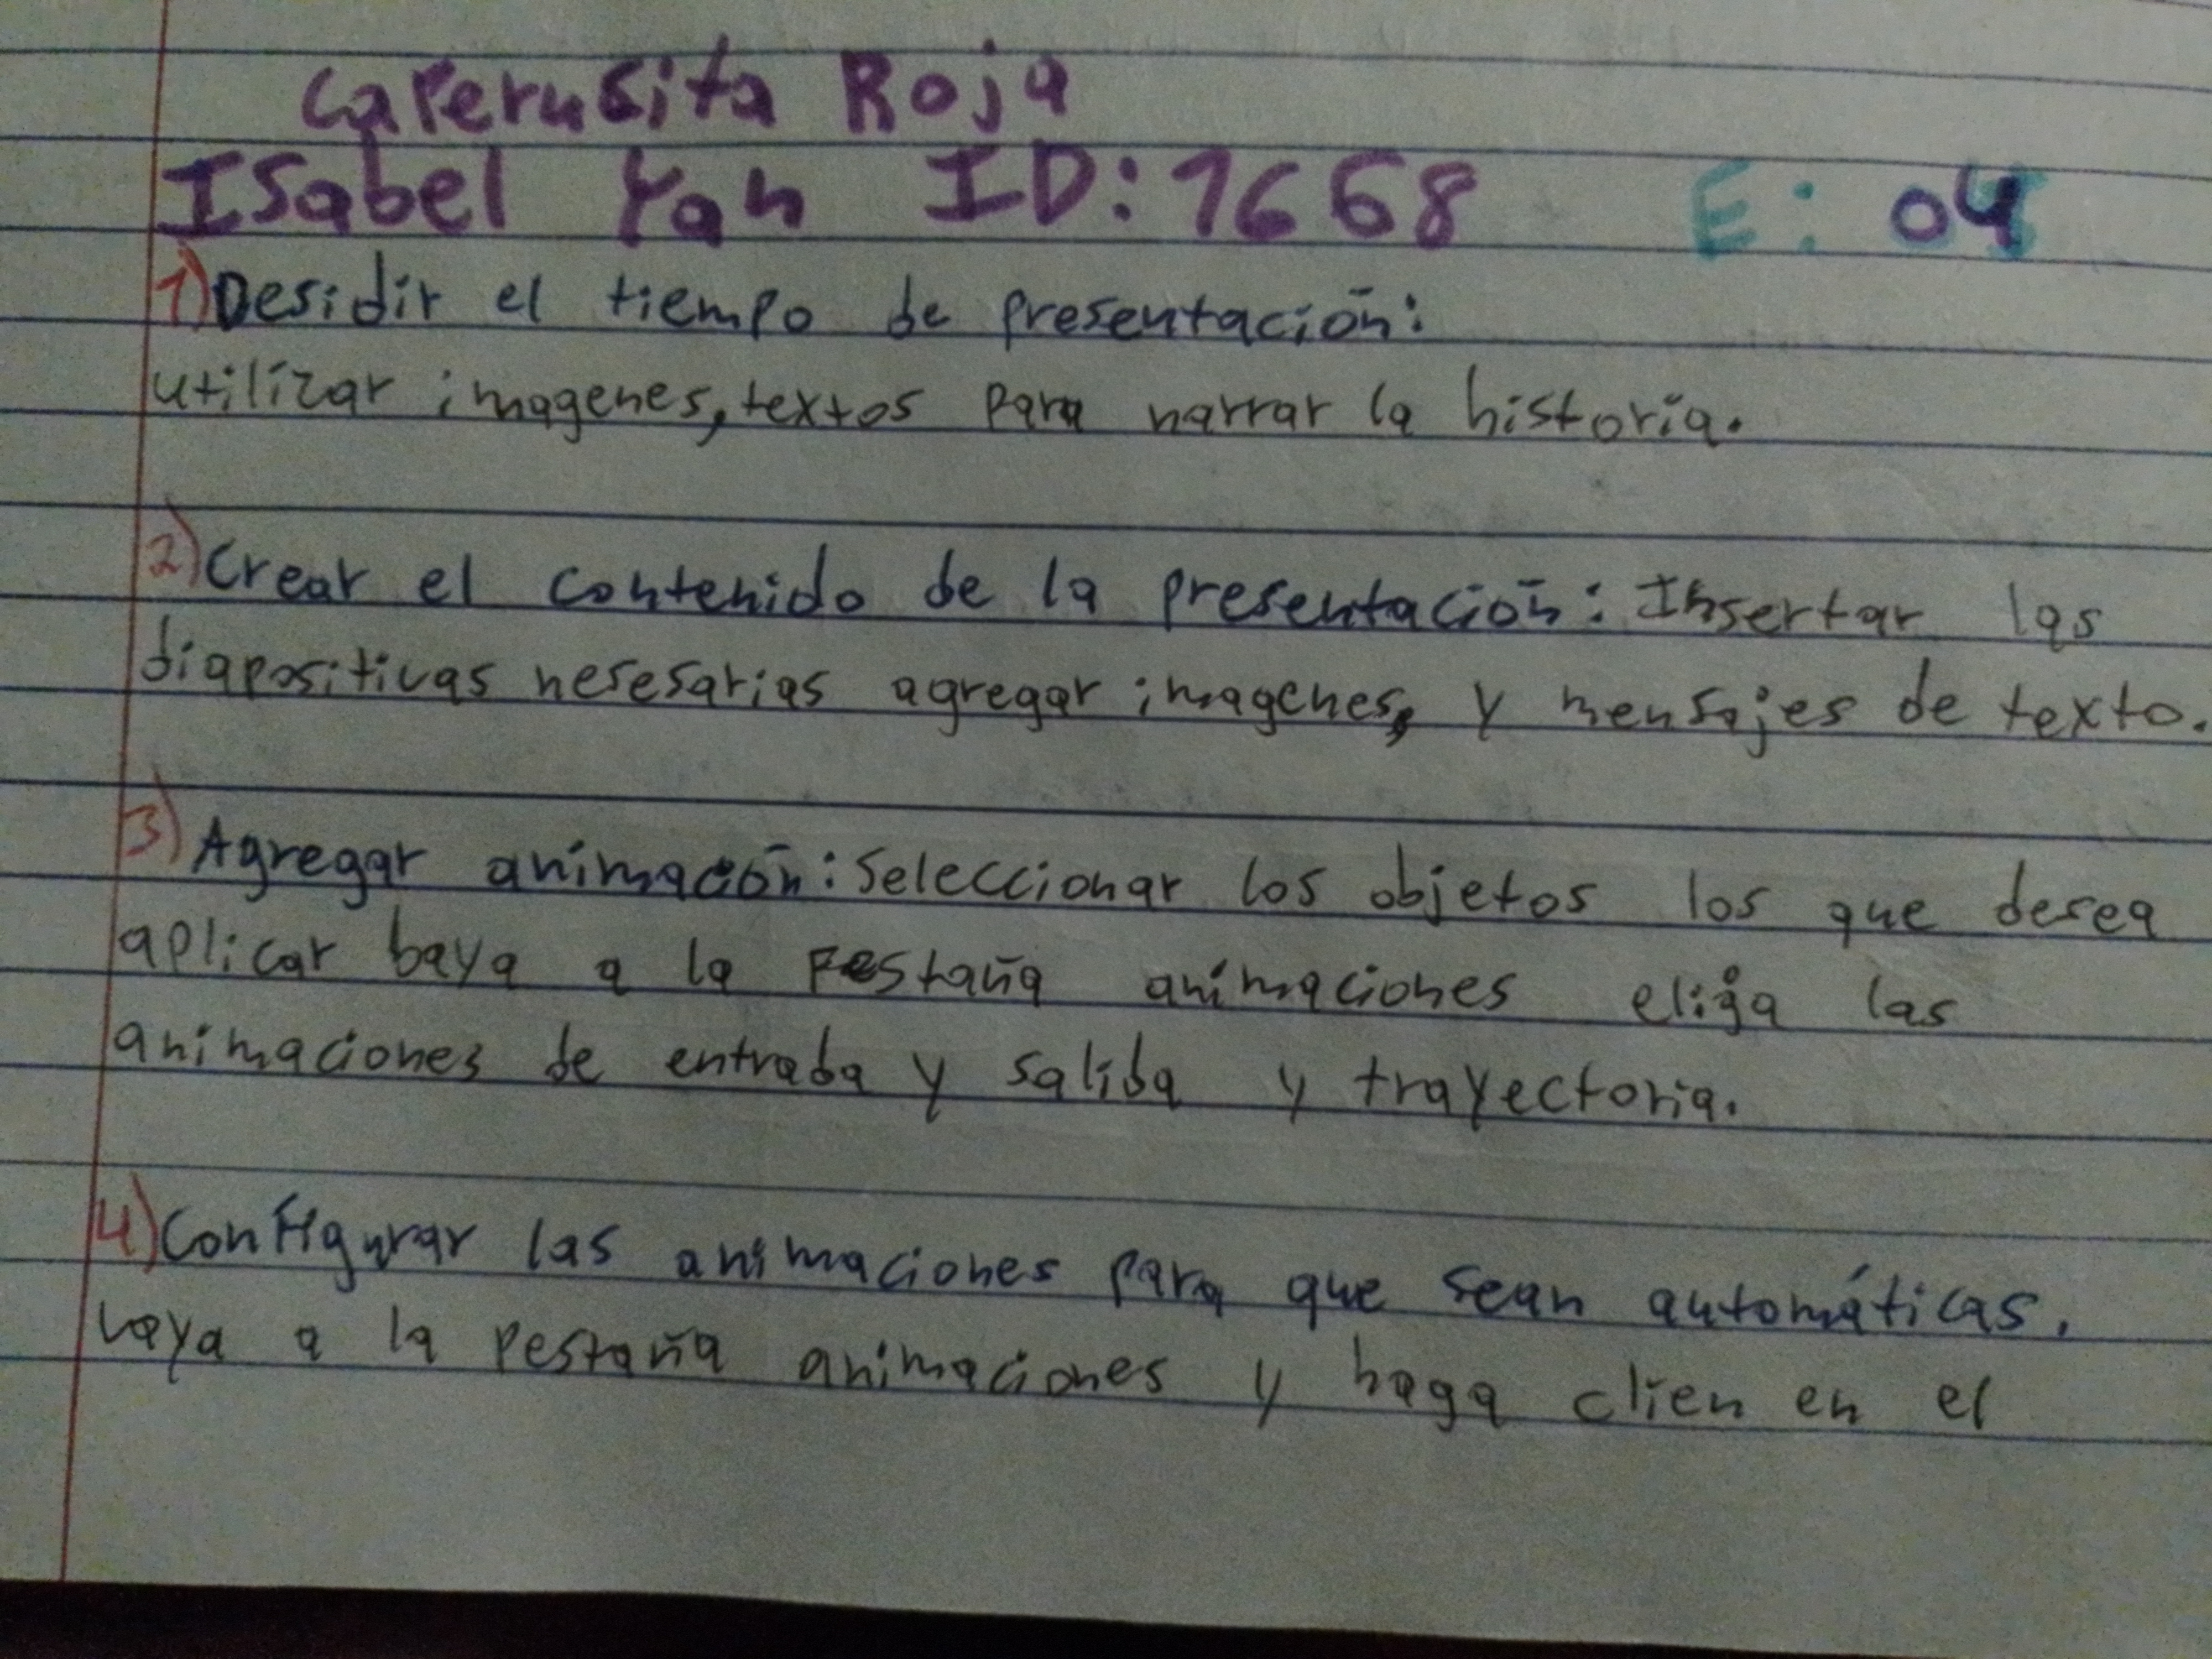 Caperusita Roja
Isabel Yan ID: 1668 E: 04
1) Desidir el tiempo de presentación:
utilizar imagenes, textos para narrar la historia.
2) Crear el contenido de la presentación: Insertar las
diapositivas nesesarias agregar imagenes, y mensajes de texto.
3) Agregar animación: Seleccionar los objetos los que desea
aplicar baya a la Pestaña animaciones elija las
animaciones de entrada y salida y trayectoria.
4) Configurar las animaciones para que sean automáticas.
vaya a la pestaña animaciones y haga clien en el